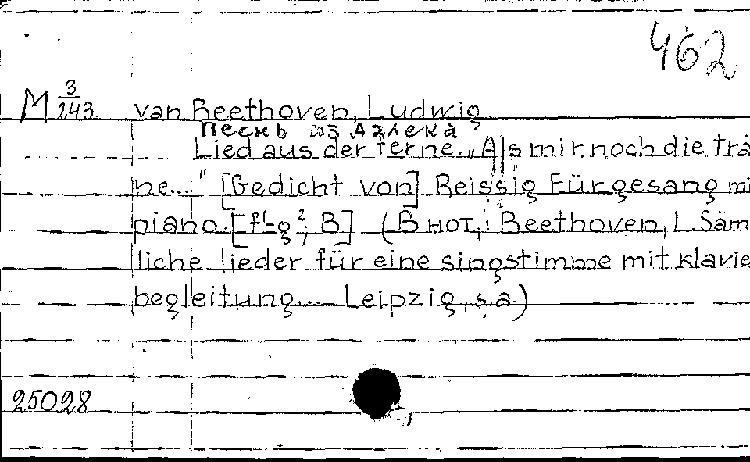 462
M 3/243 van Beethoven, Ludwig
Песнь из далека
Lied aus der ferne. „Als mir noch die trä
ne..." [Gedicht von] Reissig Für gesang mi
piano. [f¹-g², B] (В нот.: Beethoven, L. Säm
liche lieder für eine singstimme mit klavie
begleitung.... Leipzig, s.a.)
25028